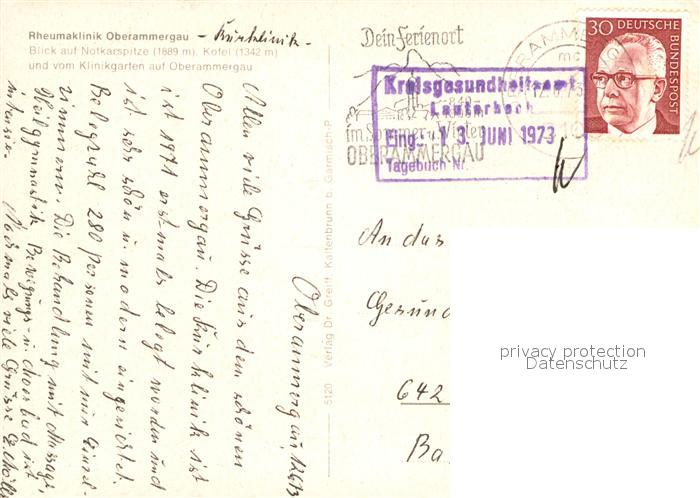 Rheumaklinik Oberammergau – Kurklinik –
Blick auf Notkarspitze (1889 m), Kofel (1342 m)
und vom Klinikgarten auf Oberammergau
Dein Ferienort
im Sommer u. Winter
OBERAMMERGAU
Kreisgesundheitsamt
Lauterbach
Eing.: 1 3. JUNI 1973
Tagebuch Nr.
30 DEUTSCHE
BUNDESPOST
Oberammergau, 12.6.73
Allen viele Grüsse aus dem schönen
Oberammergau. Die Kurklinik ist
ist 1971 erstmals belegt worden und
ist sehr schön u. modern eingerichtet.
Belegzahl 280 Personen mit nur Einzel-
zimmern. Die Behandlung mit Massage,
Heilgymnastik Bewegungs- u. Moorbad ist
intensiv. Nochmals viele Grüsse
5120 Verlag Dr. Greiff, Kaltenbrunn b. Garmisch-P.
An das
Gesund
642
Ba
privacy protection
Datenschutz